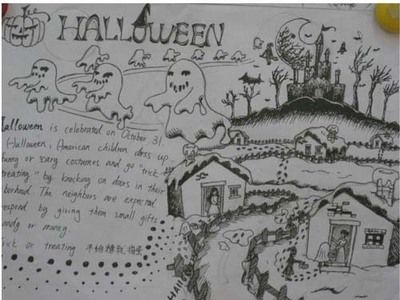 HALLOWEEN
Halloween is celebrated on October 31.
Halloween, American children dress up
funny or scary costumes and go "trick
treating" by knocking on doors in their
borhood. The neighbors are expected
respond by giving them small gifts
andy or money.
ick or treating 不给糖就捣蛋